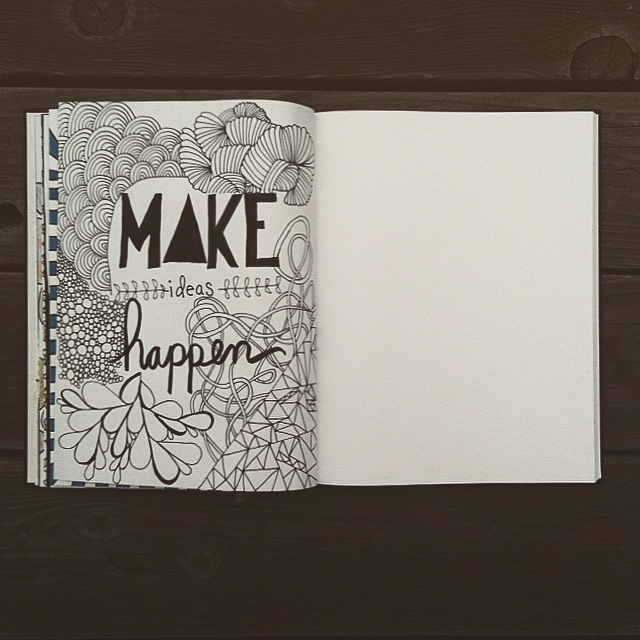 MAKE
ideas
happen